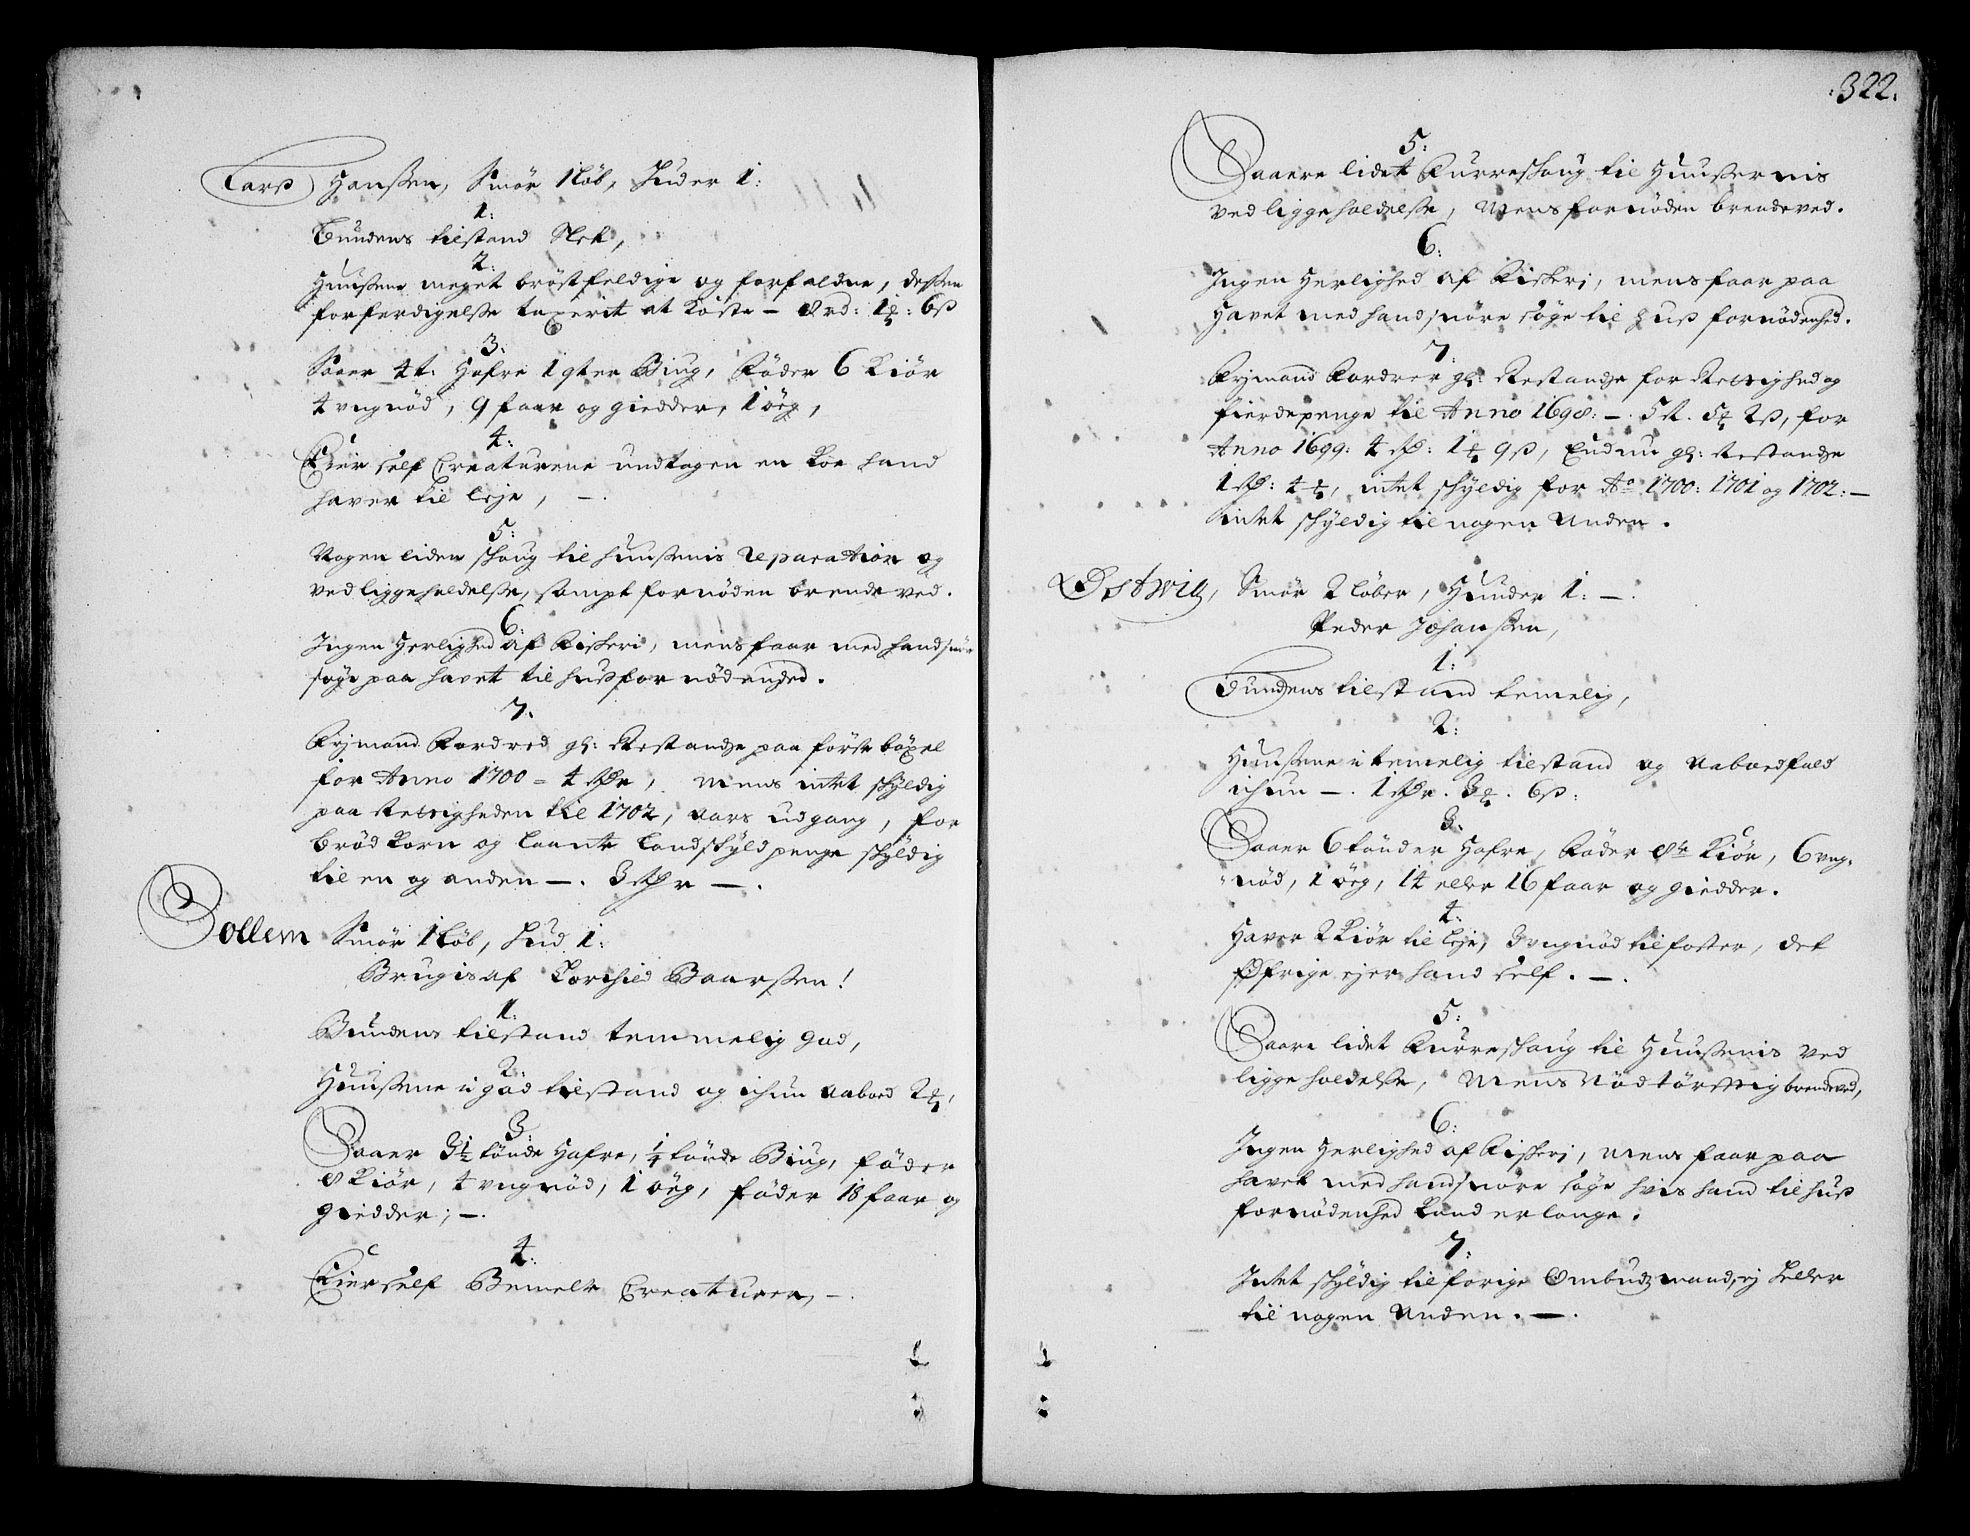 Larß Hanßen, Smør 1 løb, Huder 1:
1:
Bundens tilstand Slet,
2:
Huußene meget brøstfeldige og forfaldne, deßen
forferdigelße taxerit at koste — 8 rd: 1 ₰: 6 ß
3:
Saaer 4 t: Hafre 1 qter Biug, føder 6 kiør
4 ungnød, 9 faar og giedder, 1 øeg,
4:
Eier self Creaturene undtagen en koe hand
haver til leje, —.
5:
Nogen liden skoug til huußenis reparation og
vedligeholdelße, sampt fornøden brende ved.
6:
Ingen Herlighed af Fiskeri, mens faar med handsnør
søge paa havet til hußfornødenhed.
7.
Frjmand Pordred gl: Restandze paa første bøxel
for Anno 1700 = 4 rdr, mens intet skyldig
paa Retzigheden til 1702, aars udgang, for
brød korn og laante landskyld penge skyldig
til en og anden —. 3 rdr —.
Sollem Smør 1 løb, Hud 1:
Brugis af Torchild Baarßen!
1:
Bundens tilstand temmelig god,
2:
Huußene i god tilstand og ichun aaboed 2 ₰,
3:
Saaer 3½ tønde Hafre, ¼ tønde Biug, føder
8 kiør, 4 ungnød, 1 øeg, føder 18 faar og
giedder; —.
4:
Eier self Bemelte Creaturer, —.
322.
5:
Saaere lidet Furreskoug til Huußernis
vedligeholdelße, Mens fornøden brendeved.
6:
Ingen Herlighed af Fiskerj, mens faar paa
Havet med handsnøre søge til Huß fornødenhed.
7.
Frjmand Fordrer gl: Restandze for Retzighed og
fierdepenge til Anno 1698: —. 5 R. 5 ₰ 2 ß, for
Anno 1699: 4 rd: 1 ₰ 9 ß, Endnu gl: Restandze
1 rd: 4 ₰, intet skyldig for Ao 1700: 1701 og 1702: —
intet skyldig til nogen Anden.
Østwig, Smør 2 løber, Huuder 1: —.
Peder Johanßen,
1:
Bundens tilstand temelig,
2:
Huußene i temelig tilstand og Aaboedfald
ichun —. 1 rdr. 3 ₰. 6 ß:
3.
Saaer 6 tønder Hafre, føder 8te kiør, 6 ung-
nød, 1 øeg, 14 eller 16 faar og giedder.
4:
Haver 2 kiør til leje, 3 ungnød til foster, det
Øfrige ejer hand self. —.
5:
Saare lidet Furreskoug til Huußenis Ved
ligeholdelße, Mens Nødtørfftig brendeved,
6:
Ingen Herlighed af Fiskerj, Mens faar paa
havet med handsnøre søge hvis hand til huß
fornødenhed kand erlange.
7:
Intet skyldig til forige Ombudzmand, ej heller
til nogen Anden. —.